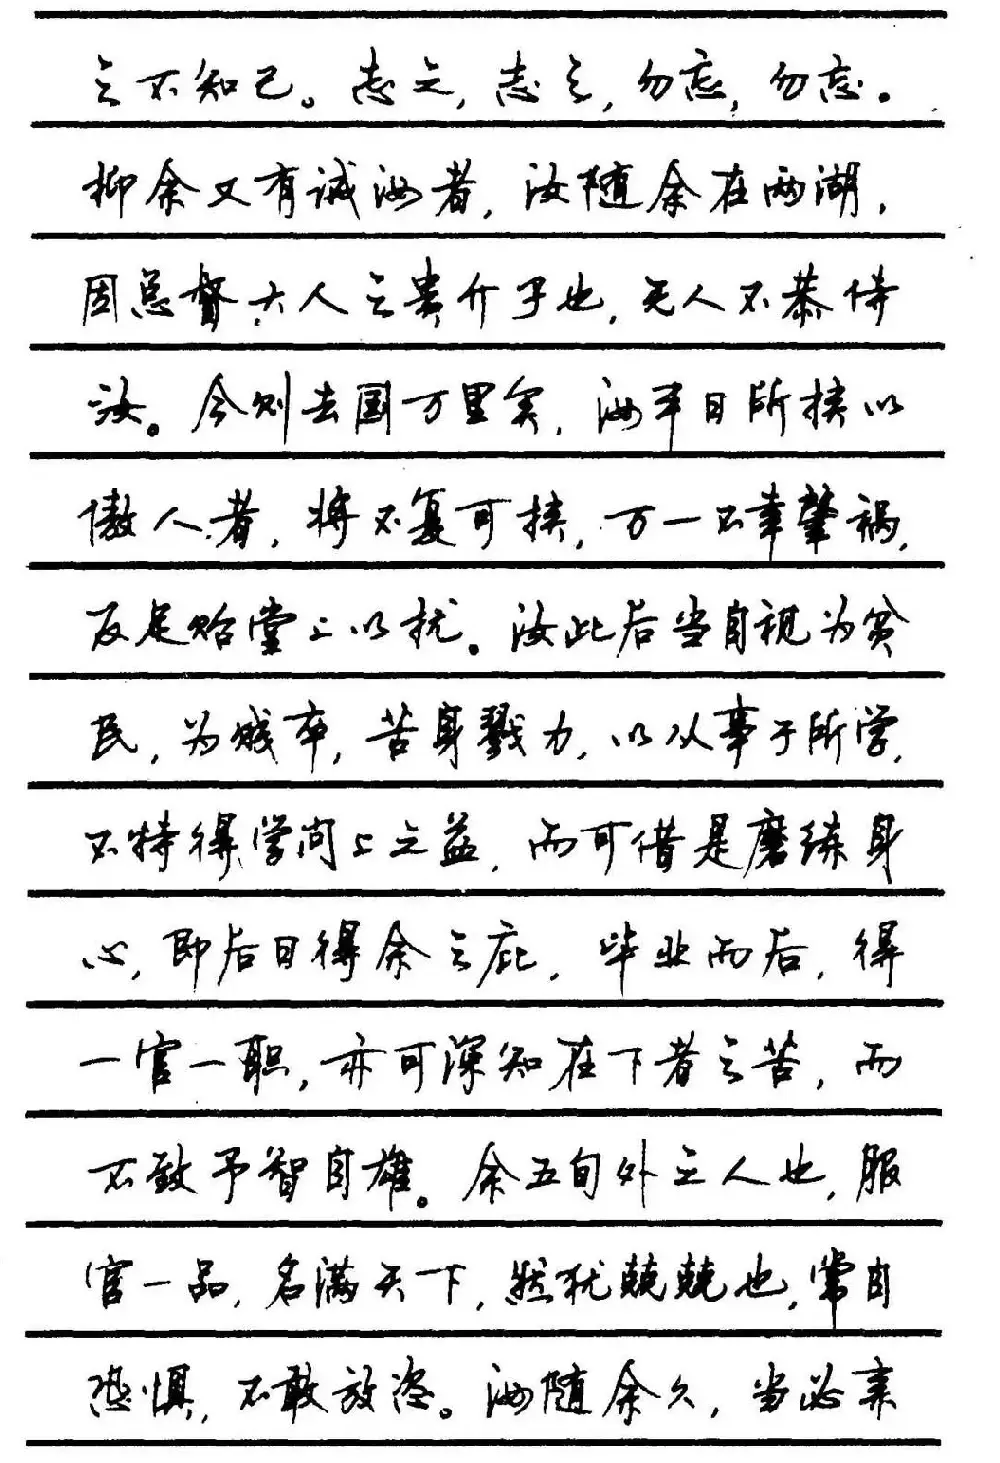 之不知己。志之，志之，勿忘，勿忘。
抑余又有诫汝者，汝随余在两湖，
固总督大人之贵介子也，无人不恭待
汝。今则去国万里矣，汝平日所挟以
傲人者，将不复可挟，万一不幸肇祸，
反足贻堂上以忧。汝此后当自视为贫
民，为贱卒，苦身戮力，以从事于所学，
不特得学问上之益，而可借是磨练身
心，即后日得余之庇，毕业而后，得
一官一职，亦可深知在下者之苦，而
不致予智自雄。余五旬外之人也，服
官一品，名满天下，然犹兢兢也，常自
恐惧，不敢放恣。汝随余久，当必亲